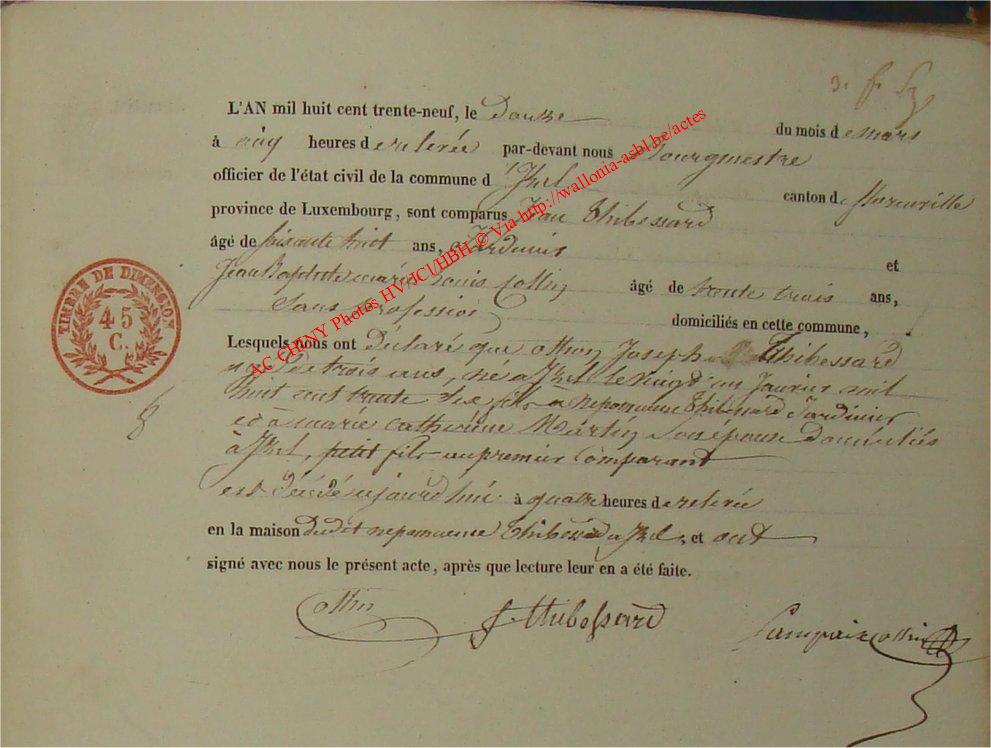 L'AN mil huit cent trente-neuf, le Douze du mois de mars
à cinq heures de relevée par-devant nous Bourgmestre
officier de l'état civil de la commune d'Izel canton de florenville
province de Luxembourg, sont comparus Jean Thibessard
âgé de soixante huit ans, Jardinier et
Jean Baptiste marie Louis Collin âgé de trente trois ans,
Sans profession domiciliés en cette commune,
Lesquels nous ont Déclaré que othon Joseph Thibessard
agé de trois ans, né a Izel le vingt un Janvier mil
huit cent trente six fils a nepomucene Thibessard Jardinier
et à marie catherine Martin son épouse domiciliés
à Izel, petit fils au premier Comparant
est décédé aujourd'hui à quatre heures de relevée
en la maison dudit nepomucene Thibessard a Izel, et ont
signé avec nous le présent acte, après que lecture leur en a été faite.
Collin J Thibessard
TIMBRE DE DIMENSION
45
C.
AC CHINY Photos HV/JCl/HBH © Via http://wallonia-asbl.be/actes